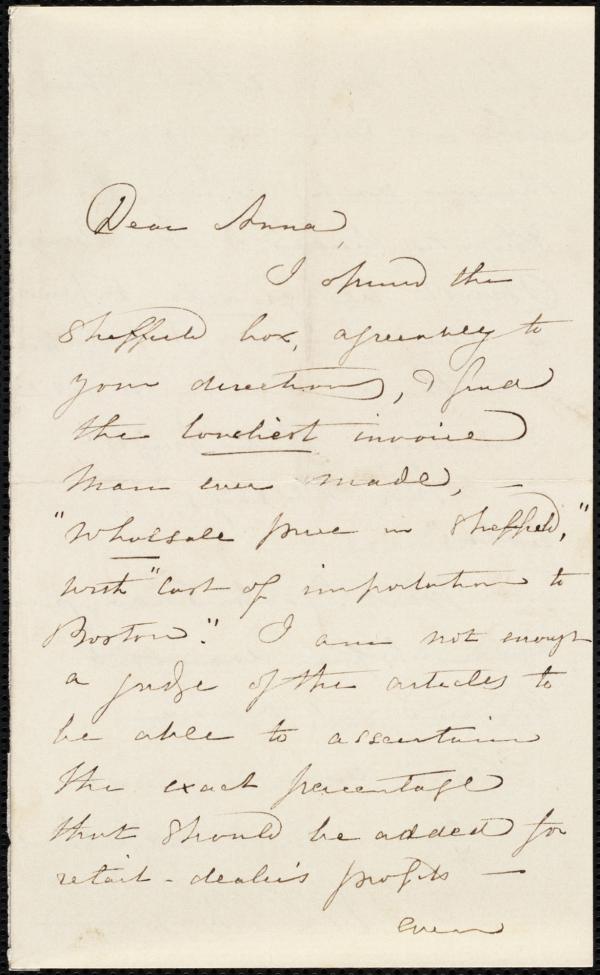 Dear Anna,
I opened the
Sheffield box, agreeably to
your directions, & find
the loveliest invoice
man ever made, —
"Wholesale price in Sheffield,"
with "Cost of importation to
Boston." I am not enough
a judge of the articles to
be able to ascertain
the exact percentage
that should be added for
retail-dealer's profits —
even